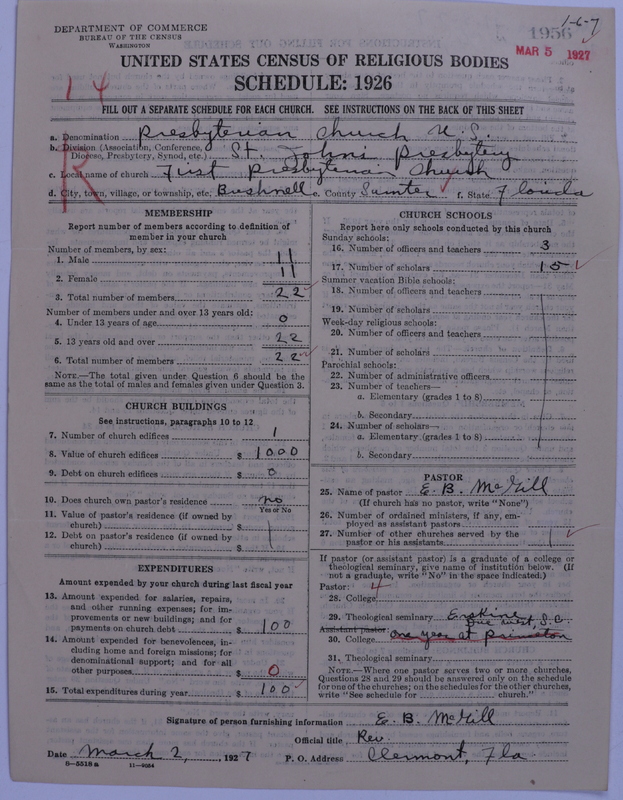 DEPARTMENT OF COMMERCE
BUREAU OF THE CENSUS
WASHINGTON
1-6-7
1956
MAR 5 1927
UNITED STATES CENSUS OF RELIGIOUS BODIES
SCHEDULE: 1926
14
R
FILL OUT A SEPARATE SCHEDULE FOR EACH CHURCH. SEE INSTRUCTIONS ON THE BACK OF THIS SHEET
a. Denomination Presbyterian Church U.S.
b. Division (Association, Conference,
Diocese, Presbytery, Synod, etc.) St. Johns Presbytery
c. Local name of church First Presbyterian Church
d. City, town, village, or township, etc. Bushnell e. County Sumter f. State Florida
MEMBERSHIP
Report number of members according to definition of
member in your church
Number of members, by sex:
1. Male 11
2. Female 11
3. Total number of members 22
Number of members under and over 13 years old:
4. Under 13 years of age 0
5. 13 years old and over 22
6. Total number of members 22
NOTE.—The total given under Question 6 should be the
same as the total of males and females given under Question 3.
CHURCH BUILDINGS
See instructions, paragraphs 10 to 12
7. Number of church edifices 1
8. Value of church edifices $ 1000
9. Debt on church edifices $ 0
10. Does church own pastor's residence no
Yes or No
11. Value of pastor's residence (if owned by
church) $
12. Debt on pastor's residence (if owned by
church) $
EXPENDITURES
Amount expended by your church during last fiscal year
13. Amount expended for salaries, repairs,
and other running expenses; for im-
provements or new buildings; and for
payments on church debt $ 100
14. Amount expended for benevolences, in-
cluding home and foreign missions; for
denominational support; and for all
other purposes $ 0
15. Total expenditures during year $ 100
CHURCH SCHOOLS
Report here only schools conducted by this church
Sunday schools:
16. Number of officers and teachers 3
17. Number of scholars 15
Summer vacation Bible schools:
18. Number of officers and teachers
19. Number of scholars
Week-day religious schools:
20. Number of officers and teachers
21. Number of scholars
Parochial schools:
22. Number of administrative officers
23. Number of teachers—
a. Elementary (grades 1 to 8)
b. Secondary
24. Number of scholars—
a. Elementary (grades 1 to 8)
b. Secondary
PASTOR
25. Name of pastor E. B. McGill
(If church has no pastor, write "None")
26. Number of ordained ministers, if any, em-
ployed as assistant pastors
27. Number of other churches served by the
pastor or his assistants 1
If pastor (or assistant pastor) is a graduate of a college or
theological seminary, give name of institution below. (If
not a graduate, write "No" in the space indicated.)
Pastor: 4
28. College
29. Theological seminary Erskine
Due West, S.C.
Assistant pastor: one year at Princeton
30. College
31. Theological seminary
NOTE.—Where one pastor serves two or more churches,
Questions 28 and 29 should be answered only on the schedule
for one of the churches; on the schedules for the other churches,
write "See schedule for church."
Signature of person furnishing information E. B. McGill
Official title Rev.
Date March 2, 1927 P. O. Address Clermont, Fla
8-5518 a 11-9054